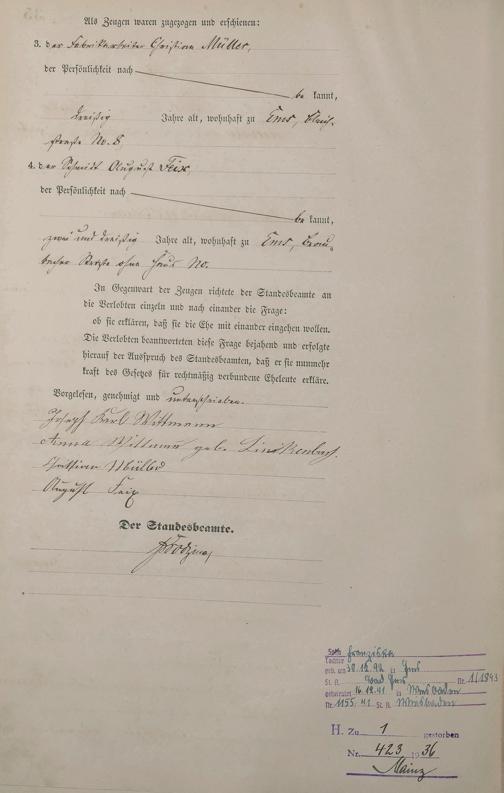 Als Zeugen waren zugezogen und erschienen:
3. der Fabrikarbeiter Christian Müller,
der Persönlichkeit nach
be kannt,
dreißig Jahre alt, wohnhaft zu Ems,
straße No. 8,
4. der Schmidt August Feix,
der Persönlichkeit nach
be kannt,
zwei und dreißig Jahre alt, wohnhaft zu Ems, Brau-
bacher Straße ohne Haus No.
In Gegenwart der Zeugen richtete der Standesbeamte an
die Verlobten einzeln und nach einander die Frage:
ob sie erklären, daß sie die Ehe mit einander eingehen wollen.
Die Verlobten beantworteten diese Frage bejahend und erfolgte
hierauf der Ausspruch des Standesbeamten, daß er sie nunmehr
kraft des Gesetzes für rechtmäßig verbundene Eheleute erkläre.
Vorgelesen, genehmigt und unterschrieben.
Joseph Karl Wittmann
Anna Wittmann geb. Linkenbach.
Christian Müller
August Feix
Der Standesbeamte.
Sohn Franziska
Tochter
geb. am 30.12.92 in Ems
St. A. Bad Ems Nr. 1/1893
geheiratet 16.12.41 in Wiesbaden
Nr. 1155.41 St. A. Wiesbaden
H. Zu 1 gestorben
Nr. 423 1936
Mainz